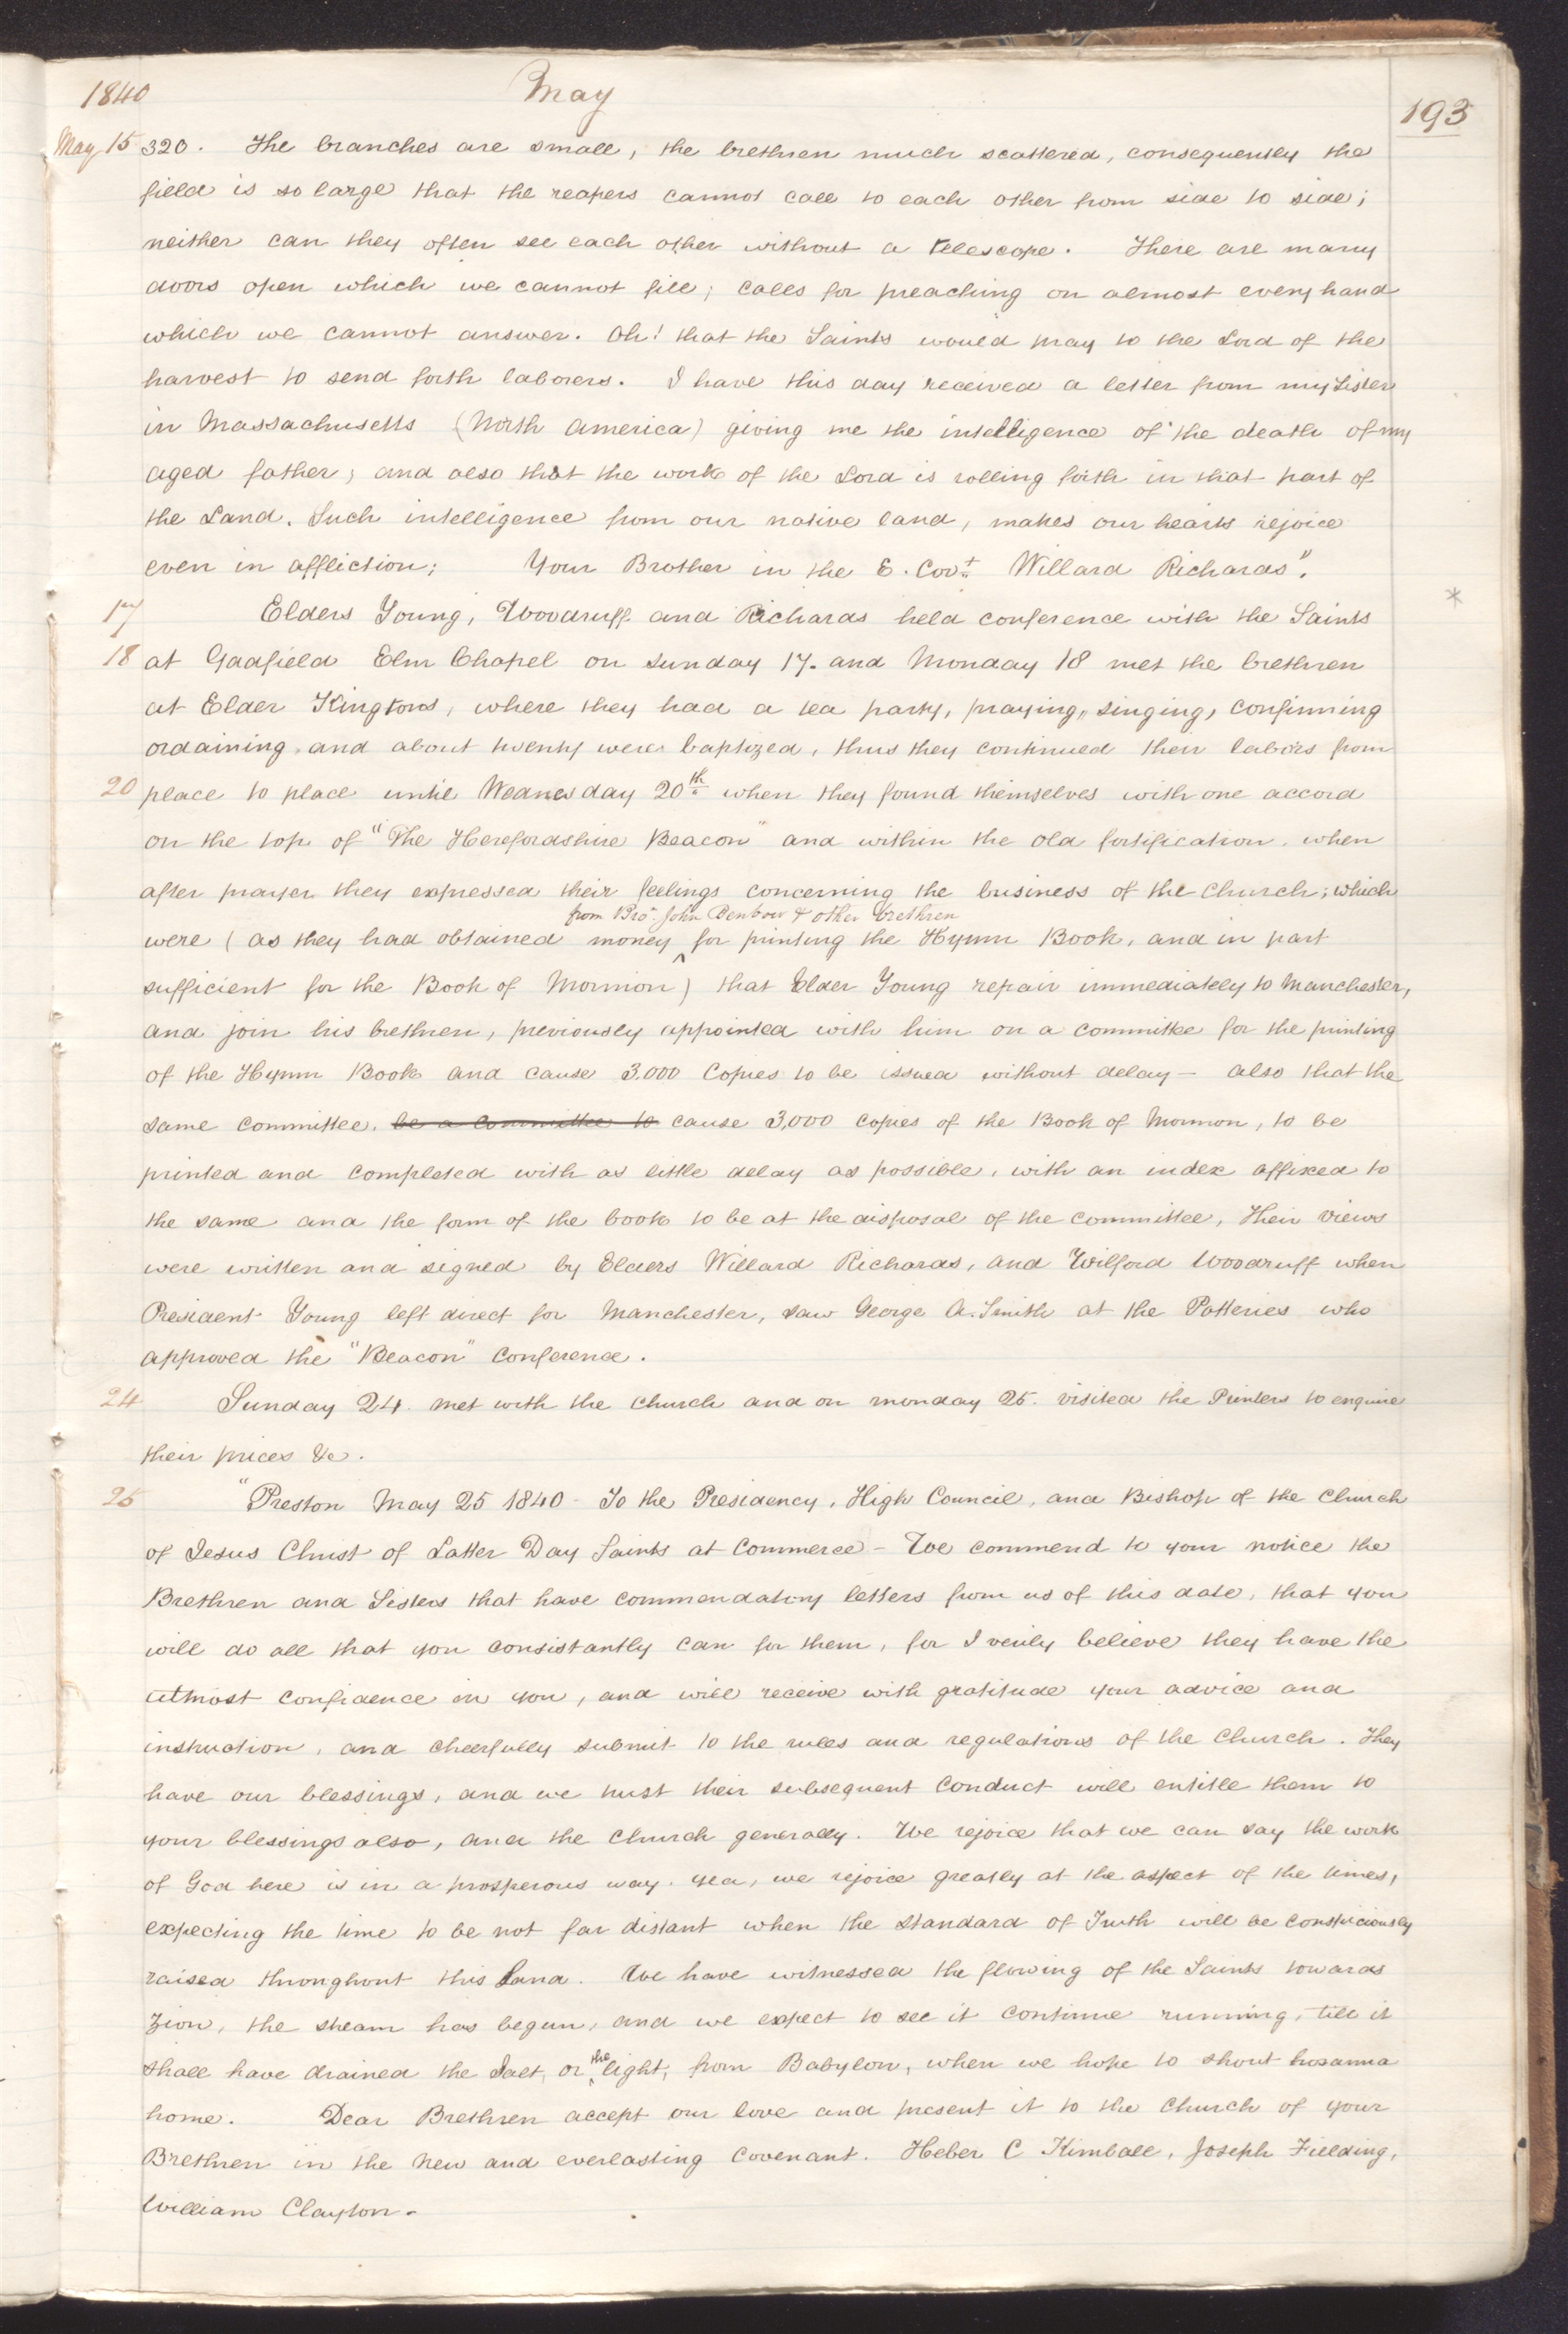 1840 May 193
May 15 320. The branches are small, the brethren much scattered, consequently the
field is so large that the reapers cannot call to each other from side to side;
neither can they often see each other without a telescope. There are many
doors open which we cannot fill; calls for preaching on almost every hand
which we cannot answer. Oh! that the Saints would pray to the Lord of the
harvest to send forth laborers. I have this day received a letter from my Sister
in Massachusetts (North America) giving me the intelligence of the death of my
aged father; and also that the work of the Lord is rolling forth in that part of
the Land. Such intelligence from our native land, makes our hearts rejoice
even in affliction; Your Brother in the E. Covt. Willard Richards".
17 Elders Young, Woodruff and Richards held conference with the Saints *
18 at Gadfield Elm Chapel on sunday 17. and Monday 18 met the brethren
at Elder Kingtons, where they had a tea party, praying, singing, confirming
ordaining and about twenty were baptized, thus they continued their labors from
20 place to place until Wednesday 20th when they found themselves with one accord
on the top of "The Herefordshire Beacon" and within the old fortification, when
after prayer they expressed their feelings concerning the business of the church; which
from Bro. John Benbow & other brethren
were (as they had obtained money ^ for printing the Hymn Book, and in part
sufficient for the Book of Mormon) that Elder Young repair immediately to Manchester,
and join his brethren, previously appointed with him on a committee for the printing
of the Hymn Book and cause 3.000 Copies to be issued without delay – also that the
same committee, be a committee to cause 3,000 copies of the Book of Mormon, to be
printed and completed with as little delay as possible, with an index affixed to
the same and the form of the book to be at the disposal of the committee, Their views
were written and signed by Elders Willard Richards, and Wilford Woodruff when
President Young left direct for Manchester, saw George A. Smith at the Potteries who
approved the "Beacon" Conference.
24 Sunday 24. met with the church and on monday 25. visited the Printers to enquire
their prices &c.
25 "Preston May 25 1840 – To the Presidency, High Council, and Bishop of the Church
of Jesus Christ of Latter Day Saints at Commerce – We commend to your notice the
Brethren and Sisters that have commendatory letters from us of this date, that you
will do all that you consistantly can for them, for I verily believe they have the
utmost confidence in you, and will receive with gratitude your advice and
instruction, and cheerfully submit to the rules and regulations of the Church. They
have our blessings, and we trust their subsequent conduct will entitle them to
your blessings also, and the Church generally. We rejoice that we can say the work
of God here is in a prosperous way. yea, we rejoice greatly at the aspect of the times,
expecting the time to be not far distant when the standard of Truth will be conspiciously
raised throughout this Land. We have witnessed the flowing of the Saints towards
Zion, the stream has begun, and we expect to see it continue running, till it
shall have drained the Salt, or ^the light, from Babylon, when we hope to shout hosanna
home. Dear Brethren accept our love and present it to the Church of your
Brethren in the New and everlasting Covenant. Heber C Kimball, Joseph Fielding,
William Clayton.